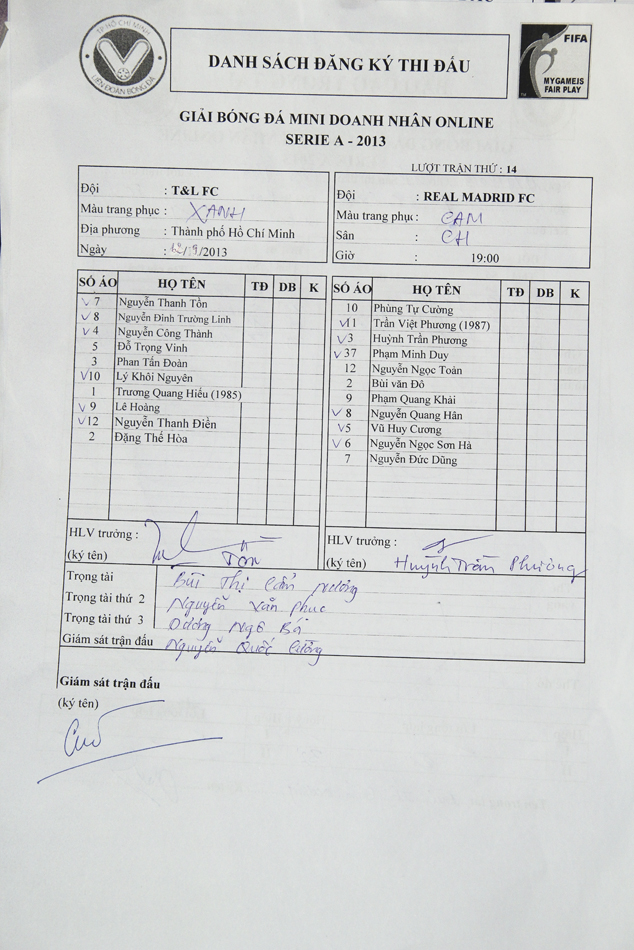 TP HỒ CHÍ MINH
LIÊN ĐOÀN BÓNG ĐÁ
DANH SÁCH ĐĂNG KÝ THI ĐẤU
FIFA
MY GAME IS
FAIR PLAY
GIẢI BÓNG ĐÁ MINI DOANH NHÂN ONLINE
SERIE A - 2013
LƯỢT TRẬN THỨ : 14
Đội : T&L FC
Màu trang phục : XANH
Địa phương : Thành phố Hồ Chí Minh
Ngày : 12/9/2013
Đội : REAL MADRID FC
Màu trang phục : CAM
Sân : CH
Giờ : 19:00
SỐ ÁO HỌ TÊN TĐ DB K
7 Nguyễn Thanh Tồn
8 Nguyễn Đình Trường Linh
4 Nguyễn Công Thành
5 Đỗ Trọng Vinh
3 Phan Tấn Đoàn
10 Lý Khôi Nguyên
1 Trương Quang Hiếu (1985)
9 Lê Hoàng
12 Nguyễn Thanh Điền
2 Đặng Thế Hòa
SỐ ÁO HỌ TÊN TĐ DB K
10 Phùng Tự Cường
11 Trần Việt Phương (1987)
3 Huỳnh Trần Phương
37 Phạm Minh Duy
12 Nguyễn Ngọc Toản
2 Bùi văn Đô
9 Phạm Quang Khải
8 Nguyễn Quang Hân
5 Vũ Huy Cương
6 Nguyễn Ngọc Sơn Hà
7 Nguyễn Đức Dũng
HLV trưởng :
(ký tên) Tồn
HLV trưởng :
(ký tên) Huỳnh Trần Phương
Trọng tài Bùi Thị Cẩm
Trọng tài thứ 2 Nguyễn Văn Phúc
Trọng tài thứ 3 Dương Ngô Bá
Giám sát trận đấu Nguyễn Quốc Cường
Giám sát trận đấu
(ký tên)